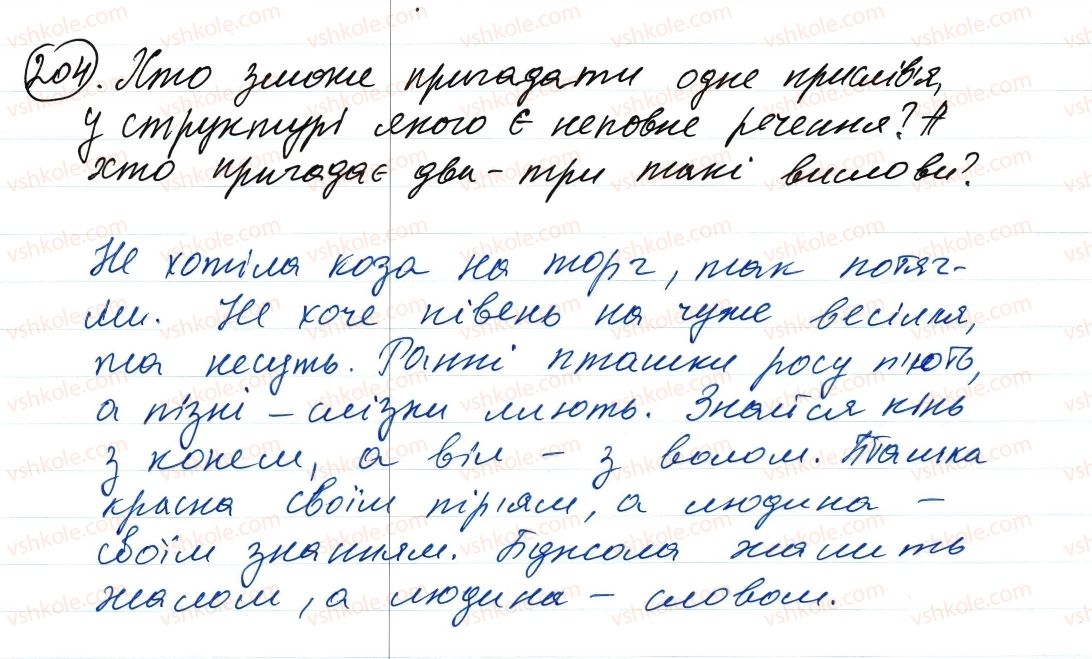 204. Хто зможе пригадати одне прислів'я,
у структурі якого є неповне речення? А
хто пригадає два-три такі вислови?
Не хотіла коза на торг, так потяг-
ли. Не хоче півень на чуже весілля,
та несуть. Ранні пташки росу п'ють,
а пізні – слізки ллють. Знайся кінь
з конем, а віл – з волом. Пташка
красна своїм пір'ям, а людина –
своїм знанням. Бджола жалить
жалом, а людина – словом.